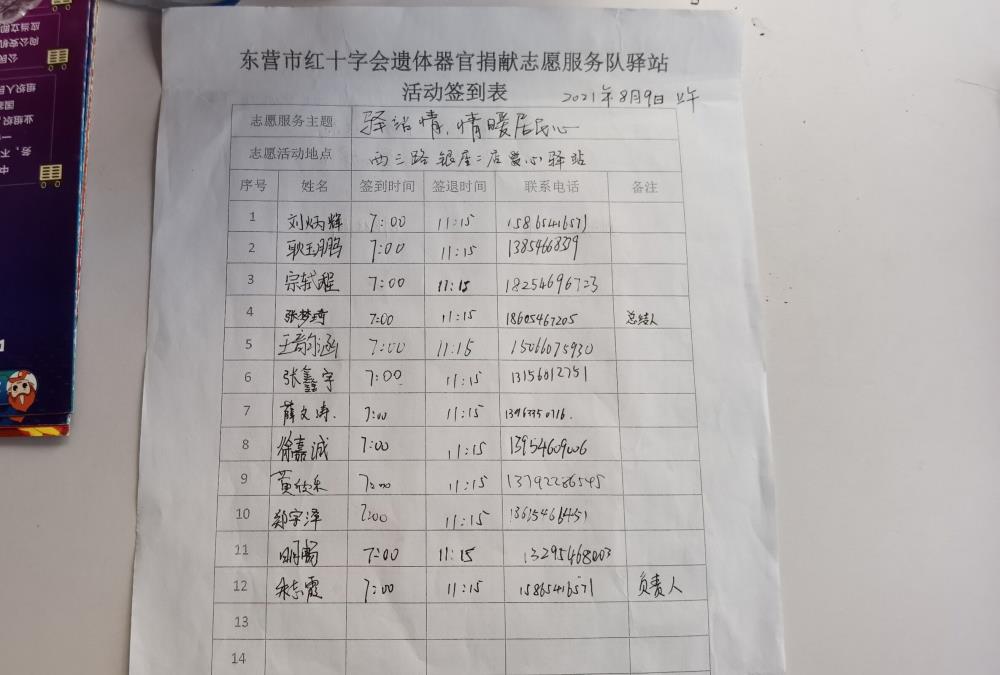 东营市红十字会遗体器官捐献志愿服务队驿站
活动签到表 2021年8月9日 上午
志愿服务主题 驿站情,情暖居民心
志愿活动地点 西三路银座二店爱心驿站
序号 姓名 签到时间 签退时间 联系电话 备注
1 刘炳辉 7:00 11:15 15865416571
2 耿玉鹏 7:00 11:15
3 宗轼程 7:00 11:15 18254696723
4 张梦琦 7:00 11:15 18605467205 总结人
5 王韵涵 7:00 11:15 15066075930
6 张鑫宇 7:00 11:15 13156012751
7 薛文涛. 7:00 11:15 13963350716.
8 徐嘉诚 7:00 11:15 13954609006
9 黄欣乐 7:00 11:15 13792286545
10 郑宇泽 7:00 11:15
11 明畅 7:00 11:15 13295468003
12 朱志霞 7:00 11:15 15865416571 负责人
13
14